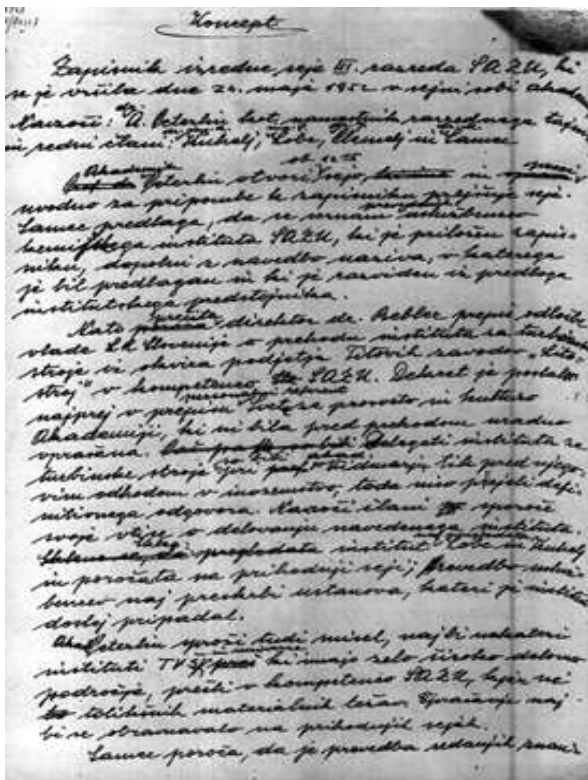 Koncept
Zapisnik izredne seje III. razreda SAZU, ki
se je vršila dne 24. maja 1952 v sejni sobi akad
Navzoči: A. Peterlin kot namestnik razrednega taj
in redni člani: Kuhelj, Lobe, in Samec
Akademik
Peterlin otvori sejo in
uvodno za pripombe k zapisniku prejšnje seje.
Samec predlaga, da se seznam uslužbencev
kemijskega instituta SAZU, ki je priložen zapis-
niku, dopolni z navedbo naziva, v katerega
je bil predlagan in ki je razviden iz predloga
institutskega predstojnika.
Nato prečita direktor dr. Bebler prepis odločbe
vlade LR Slovenije o prehodu instituta za turbinske
stroje iz okvira podjetja Titovih zavodov „Lito
stroj“ v kompetenco SAZU. Dekret je poslalo
najprej v prepisu Svet za prosveto in kulturo
Akademiji, ki ni bila pred prehodom uradno
vprašana. Delegati instituta za
turbinske stroje pri Vidmarju, tik pred njego
vim odhodom v inozemstvo, toda niso prejeli defi
nitivnega odgovora. Navzoči člani sporoče
svoje vtise o delovanju navedenega instituta.
pregledata institut Lobe in Kuhelj
in poročata na prihodnji seji; prevedbo usluž
bencev naj preskrbi ustanova, kateri je institut
doslej pripadal.
Akad. Peterlin sproži tudi misel, naj bi nekateri
instituti TVŠ, ki imajo zelo široko delovno
področje, prešli v kompetenco SAZU, kjer ne
bo tolikšnih materialnih težav. Vprašanje naj
bi se obravnavalo na prihodnjih sejah.
Samec poroča, da je prevedba sedanjih znan-